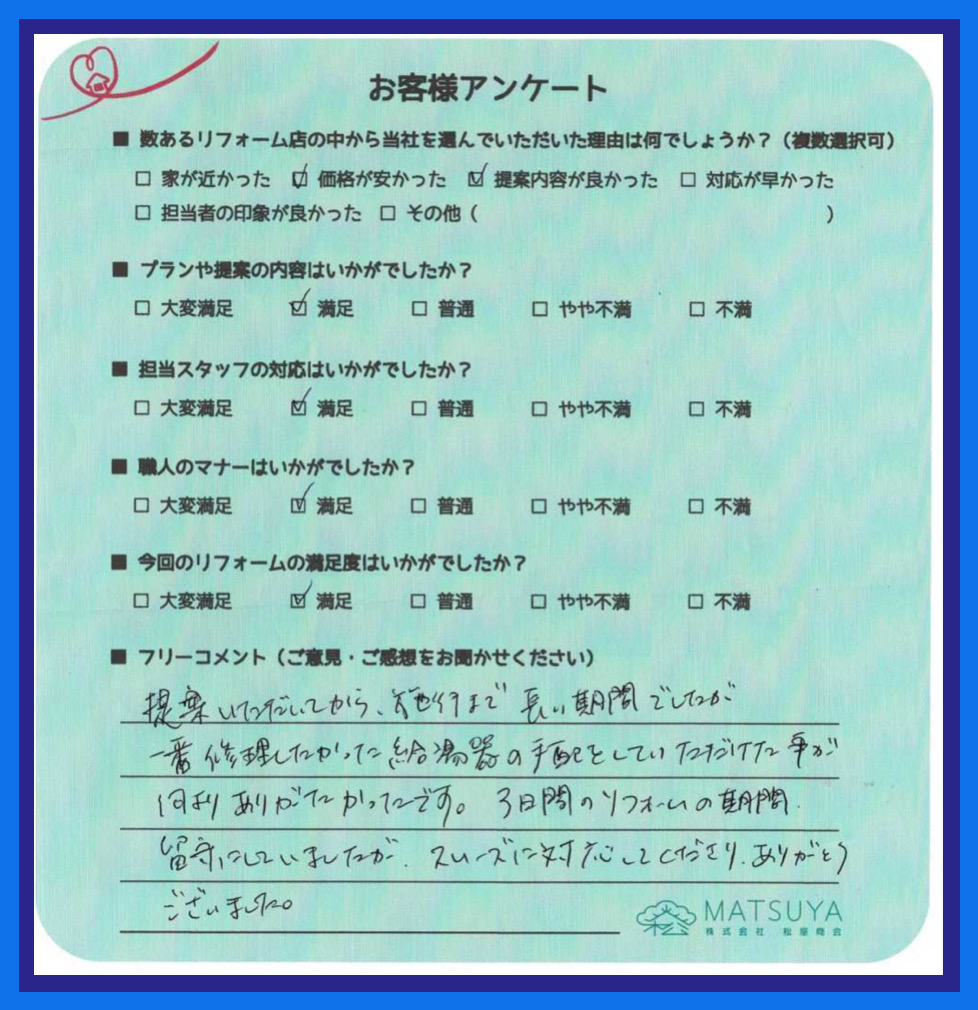 お客様アンケート
■ 数あるリフォーム店の中から当社を選んでいただいた理由は何でしょうか？（複数選択可）
□ 家が近かった ☑ 価格が安かった ☑ 提案内容が良かった □ 対応が早かった
□ 担当者の印象が良かった □ その他（ ）
■ プランや提案の内容はいかがでしたか？
□ 大変満足 ☑ 満足 □ 普通 □ やや不満 □ 不満
■ 担当スタッフの対応はいかがでしたか？
□ 大変満足 ☑ 満足 □ 普通 □ やや不満 □ 不満
■ 職人のマナーはいかがでしたか？
□ 大変満足 ☑ 満足 □ 普通 □ やや不満 □ 不満
■ 今回のリフォームの満足度はいかがでしたか？
□ 大変満足 ☑ 満足 □ 普通 □ やや不満 □ 不満
■ フリーコメント（ご意見・ご感想をお聞かせください）
提案いただいてから、施行まで 長い期間でしたが
一番修理したかった給湯器の手配をしていただけた事が
何よりありがたかったです。 3日間のリフォームの期間
留守にしていましたが、スムーズに対応してくださり、ありがとう
ございました。
松 MATSUYA
株式会社 松屋商会